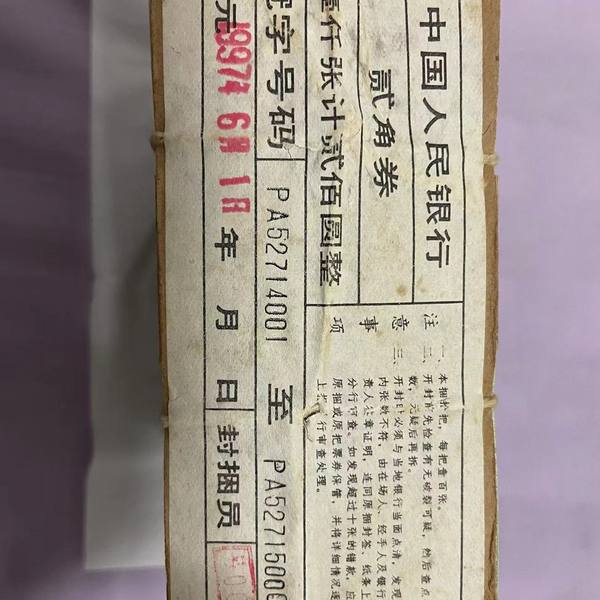 中国人民银行
贰角券
壹仟张计贰佰圆整
字号码 PA52714001 至 PA52715000
元 1997年 6月 1日 年 月 日 封捆员
注意事项
一、本捆拾把,每把壹百张。
二、开封前先检查有无破裂可疑,然后查点
数,无疑后再拆。
三、开封时必须与当地银行当面点清,发现
内张数不符,由在场人、经手人及银行
责人公章证明,连同原捆封签、纸条上
分行审查。如发现超过十张的错款,应
原捆或原把票券保管,并将详细情况逐
上报 行审查处理。